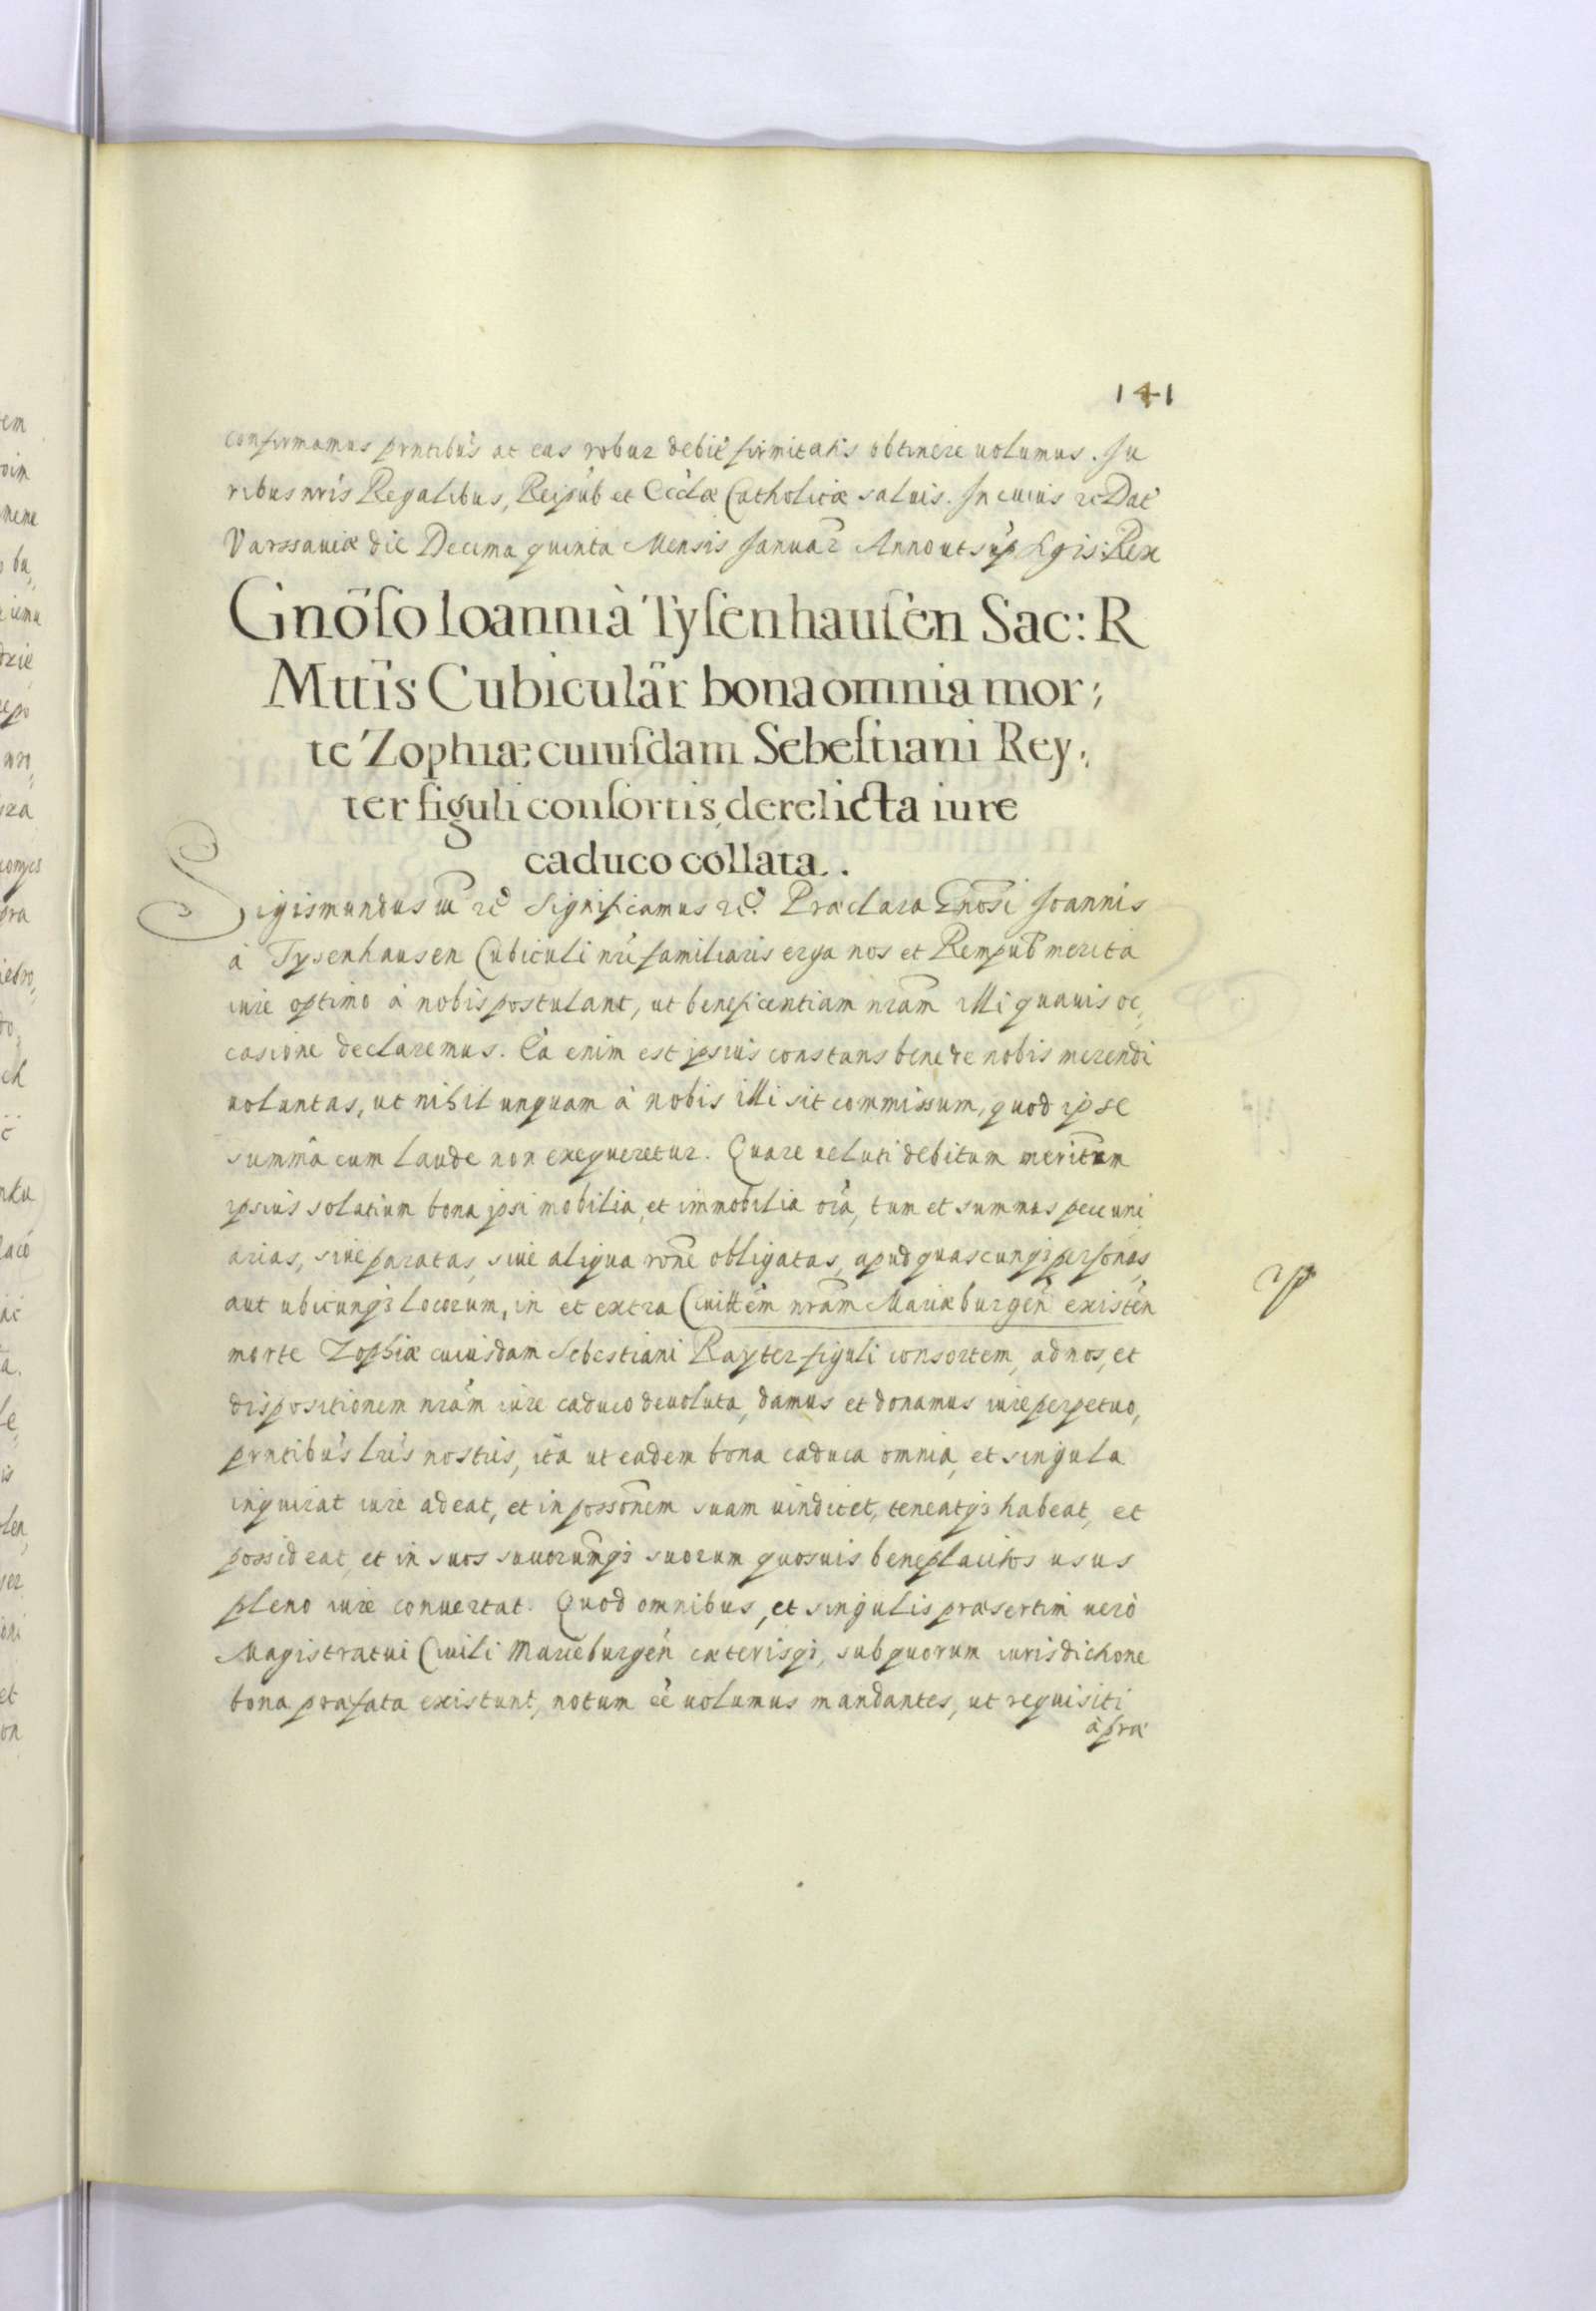 141
confirmamus prntibus ac eas robur debite firmitatis obtinere uolumus. Iu
ribus nris Regalibus, Reipub et Ecclæ Catholicæ saluis. In cuius rc Dat
Varssauiæ die Decima quinta Mensis Januar Anno ut sup Sgis: Rex
Gnoso Ioanni à Tysenhausen Sac: R
Mttis Cubicular bona omnia mor,
te Zophiæ cuiusdam Sebestiani Rey,
ter figuli consortis derelicta iure
caduco collata.
Sigismundus iii rc Significamus rc. Præclara Gnosi Joannis
à Tysenhausen Cubiculi nri familiaris erga nos et Rempub merita
iure optimo à nobis postulant, ut beneficentiam nram illi quauis oc,
casione declaremus. Ea enim est ipsius constans bene de nobis merendi
uoluntas, ut nihil unquam à nobis illi sit commissum, quod ipse
summâ cum laude non exequeretur. Quare ueluti debitum meritum
ipsius solatium bona ipsi mobilia, et immobilia oia, tum et summas pecuni
arias, siue paratas, siue aliqua rone obligatas, apud quascunq; personas,
aut ubicunq; locorum, in et extra Ciuittem nram Mariæburgen existen
morte Zophiæ cuiusdam Sebestiani Rayter figuli consortem, ad nos, et
dispositionem nram iure caduco deuoluta, damus et donamus iure perpetuo,
prntibus lris nostris, ita ut eadem bona caduca omnia, et singula
inquirat iure adeat, et in possonem suam uindicet, teneatq; habeat, et
possideat, et in suos suorumq; suorum quosuis beneplacitos usus
pleno iure conuertat. Quod omnibus, et singulis præsertim uerò
Magistratui Ciuili Marieburgen cæterisq;, sub quorum iurisdictione
bona præfata existunt, notum ee uolumus mandantes, ut requisiti
à præ